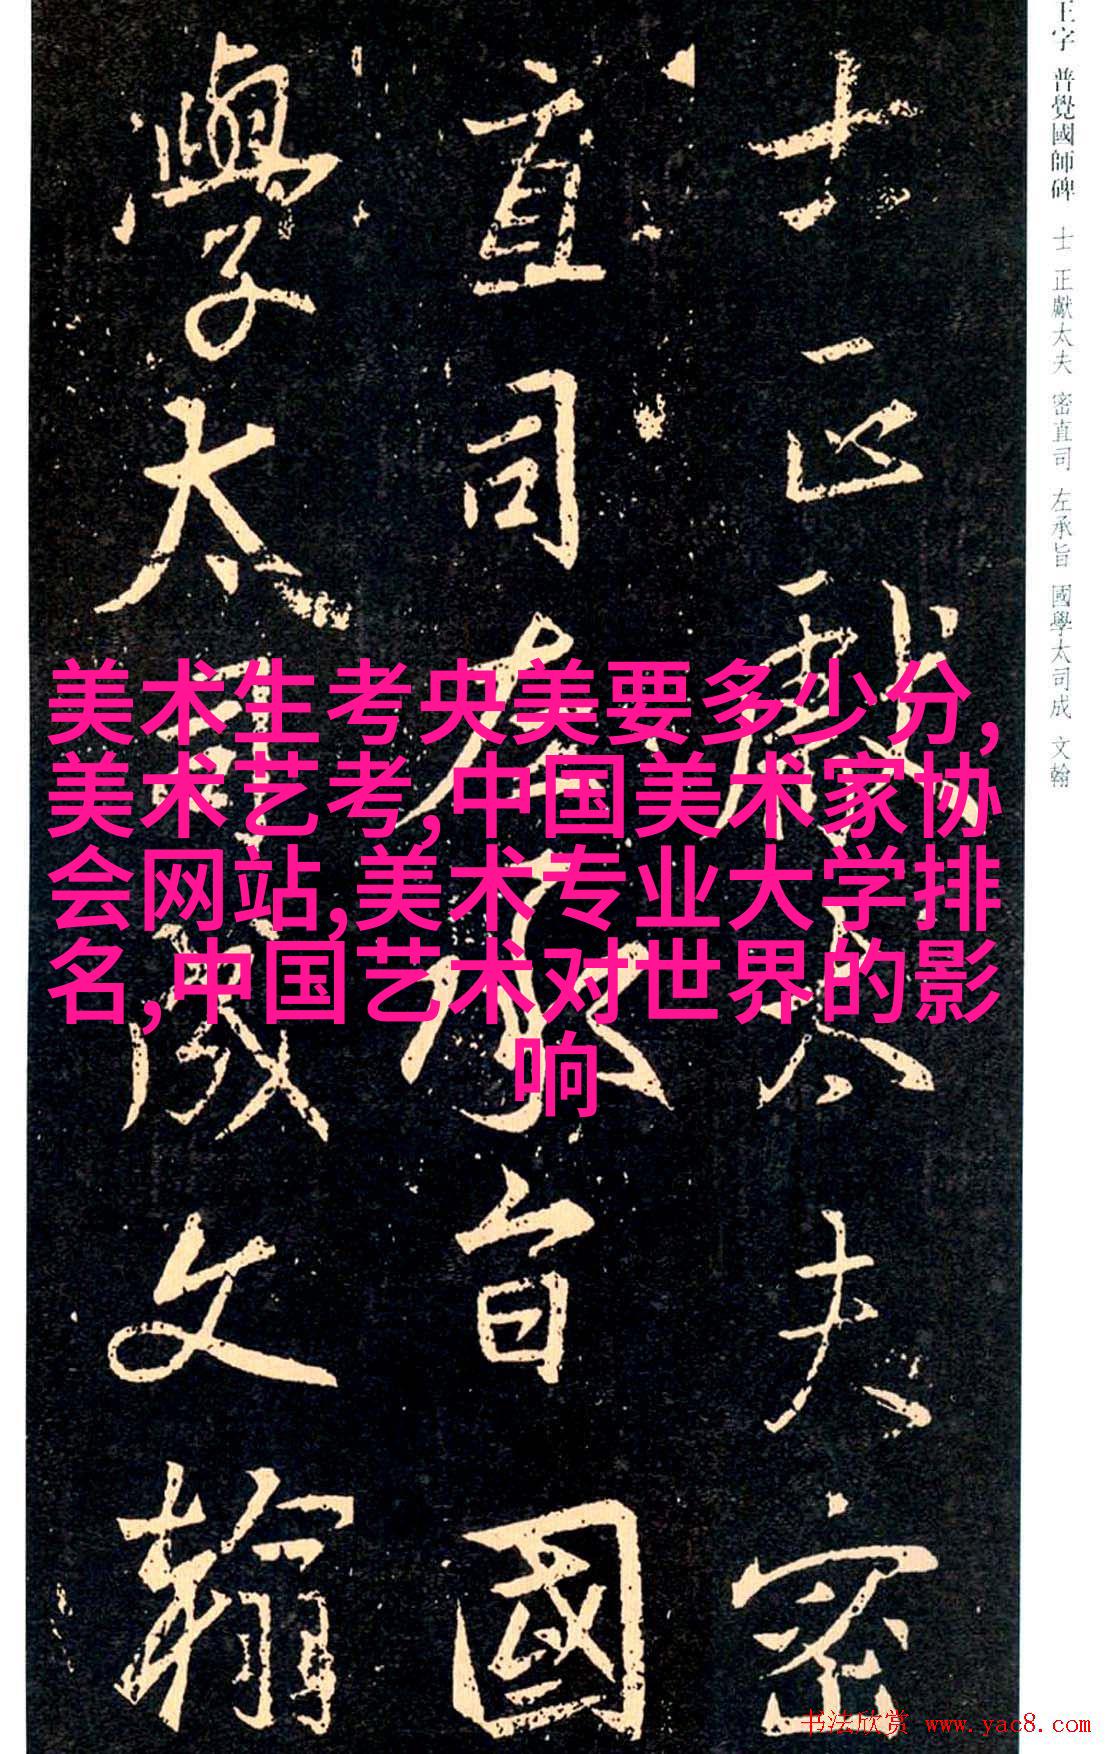 王字 普覺國師碑 士 正獻太夫 密直司 左承旨 國學太司成 文翰
士正獻太夫密
直司左承旨國
學太司成文翰
美术生考央美要多少分,
美术艺考,中国美术家协
会网站,美术专业大学排
名,中国艺术对世界的影
响
书法欣赏 www.yac8.com